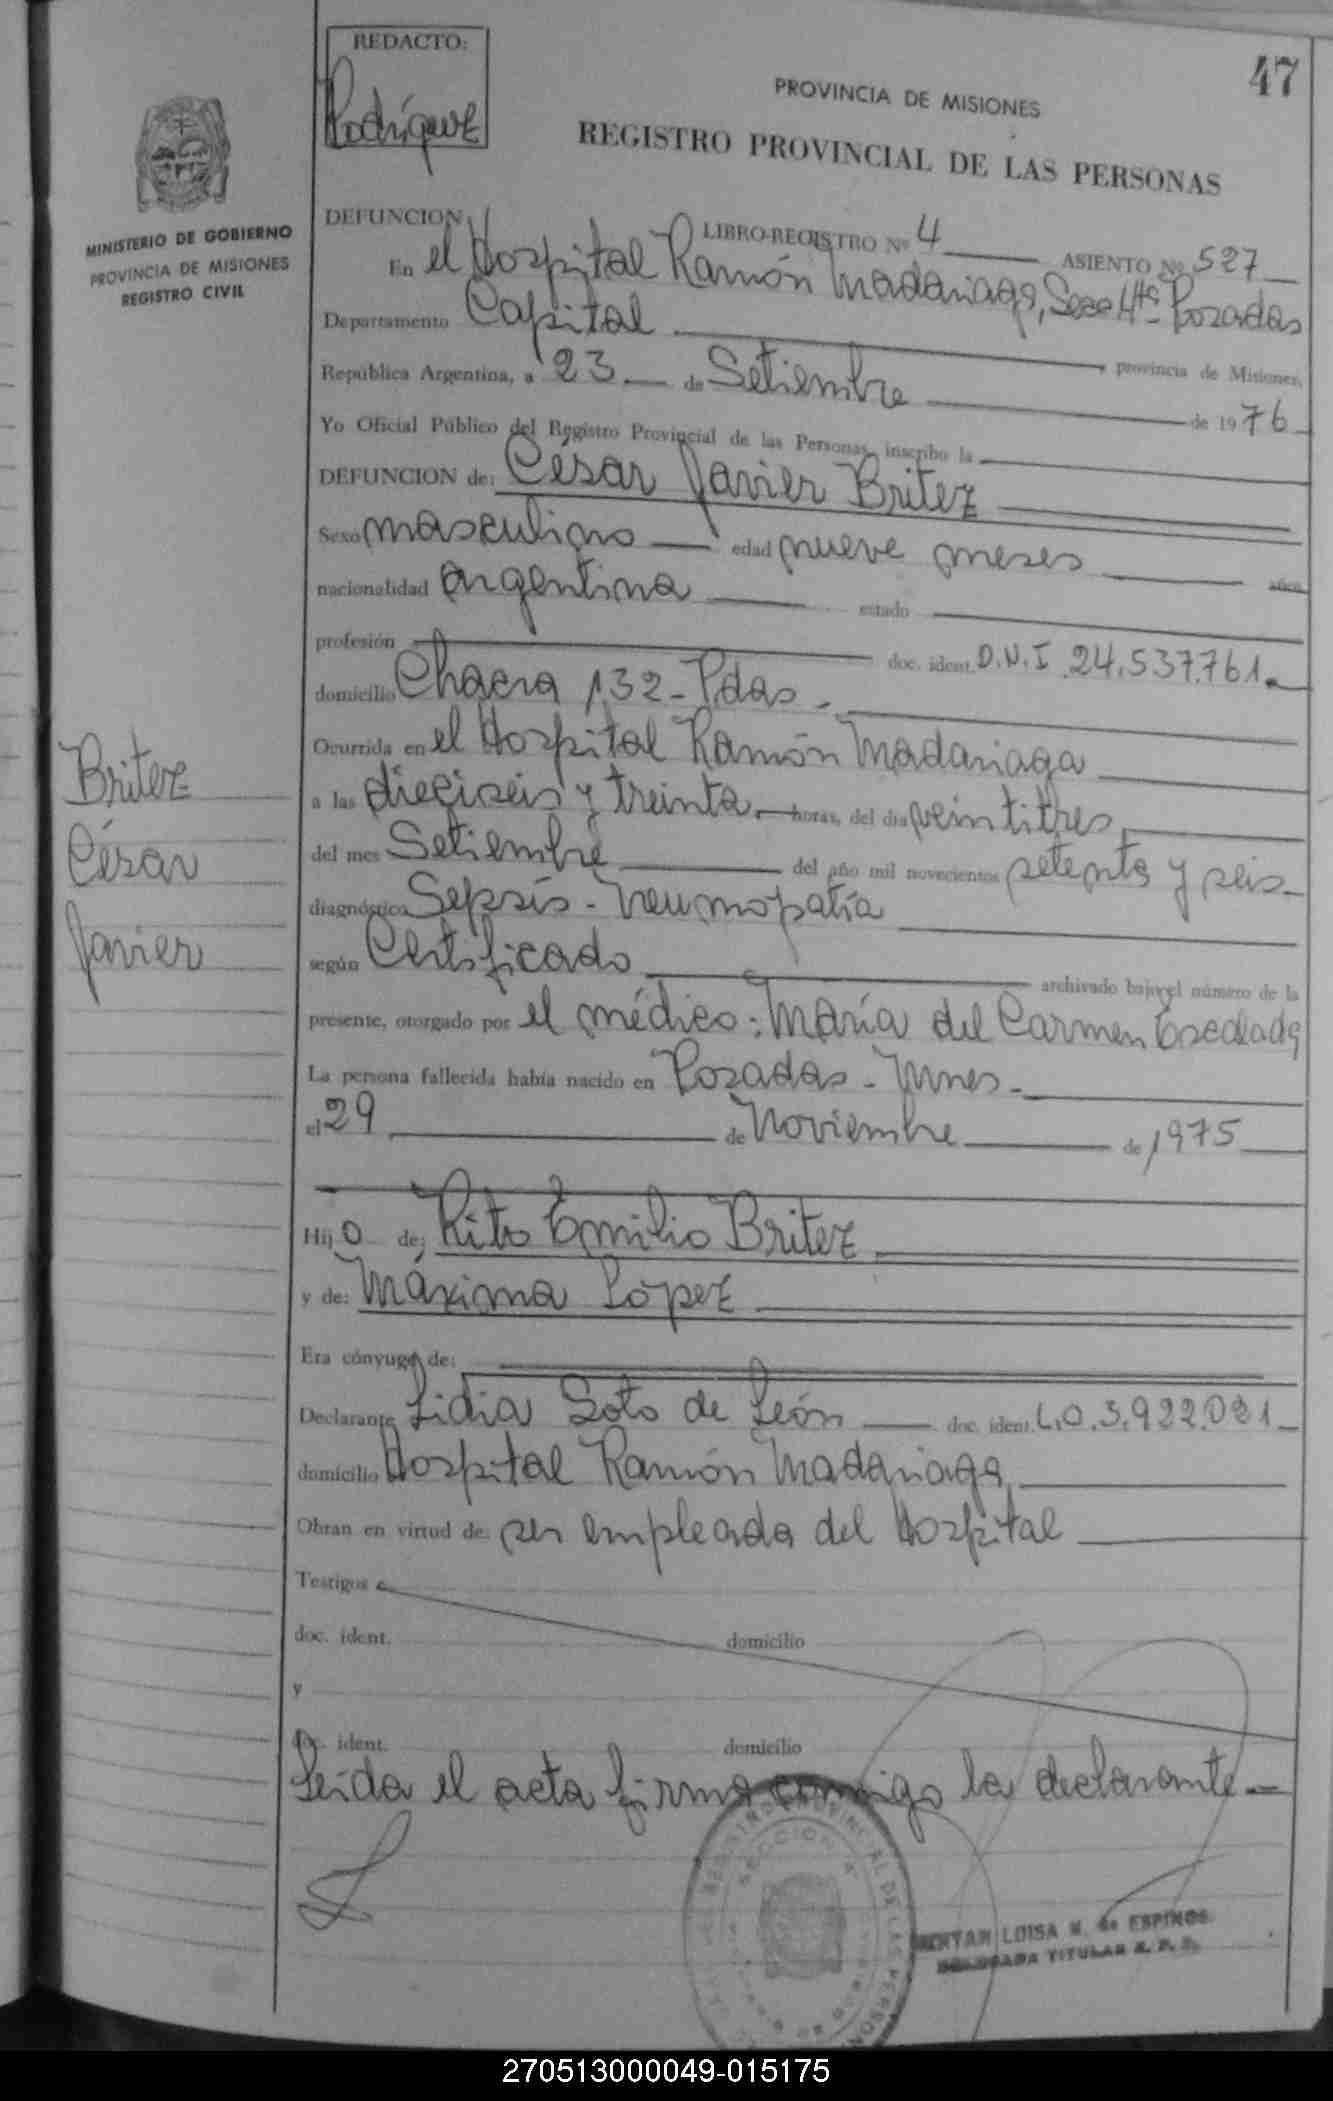 47
REDACTO:
Rodríguez
PROVINCIA DE MISIONES
REGISTRO PROVINCIAL DE LAS PERSONAS
MINISTERIO DE GOBIERNO
PROVINCIA DE MISIONES
REGISTRO CIVIL
DEFUNCION LIBRO-REGISTRO Nº 4 ASIENTO Nº 527
En el Hospital Ramón Madariaga, Secc 4ta Posadas
Departamento Capital provincia de Misiones,
República Argentina, a 23 de Setiembre de 1976
Yo Oficial Público del Registro Provincial de las Personas, inscribo la
DEFUNCION de: César Javier Britez
Sexo masculino edad nueve meses años
nacionalidad argentina estado
profesión doc. ident. D.N.I. 24.537.761.
domicilio Chacra 132 - Pdas.
Ocurrida en el Hospital Ramón Madariaga
a las dieciseis y treinta horas, del día veintitres
del mes Setiembre del año mil novecientos setenta y seis
diagnóstico Sepsis - Neumopatía
según Certificado archivado bajo el número de la
presente, otorgado por el médico: María del Carmen
La persona fallecida había nacido en Posadas - Mnes.
el 29 de Noviembre de 1975
Hijo de: Rito Emilio Britez
y de: Máxima López
Era cónyuge de:
Declarante Lidia Soto de León doc. ident. L.C. 3.922.021
domicilio Hospital Ramón Madariaga
Obran en virtud de: ser empleada del Hospital
Testigos
doc. ident. domicilio
y
doc. ident. domicilio
Leída el acta firma conmigo la declarante
Britez
César
Javier
REGISTRO PROVINCIAL DE LAS PERSON
SECCION 4ª
LUISA M. de ESPINOS
TITULAR R. P. P.
270513000049-015175